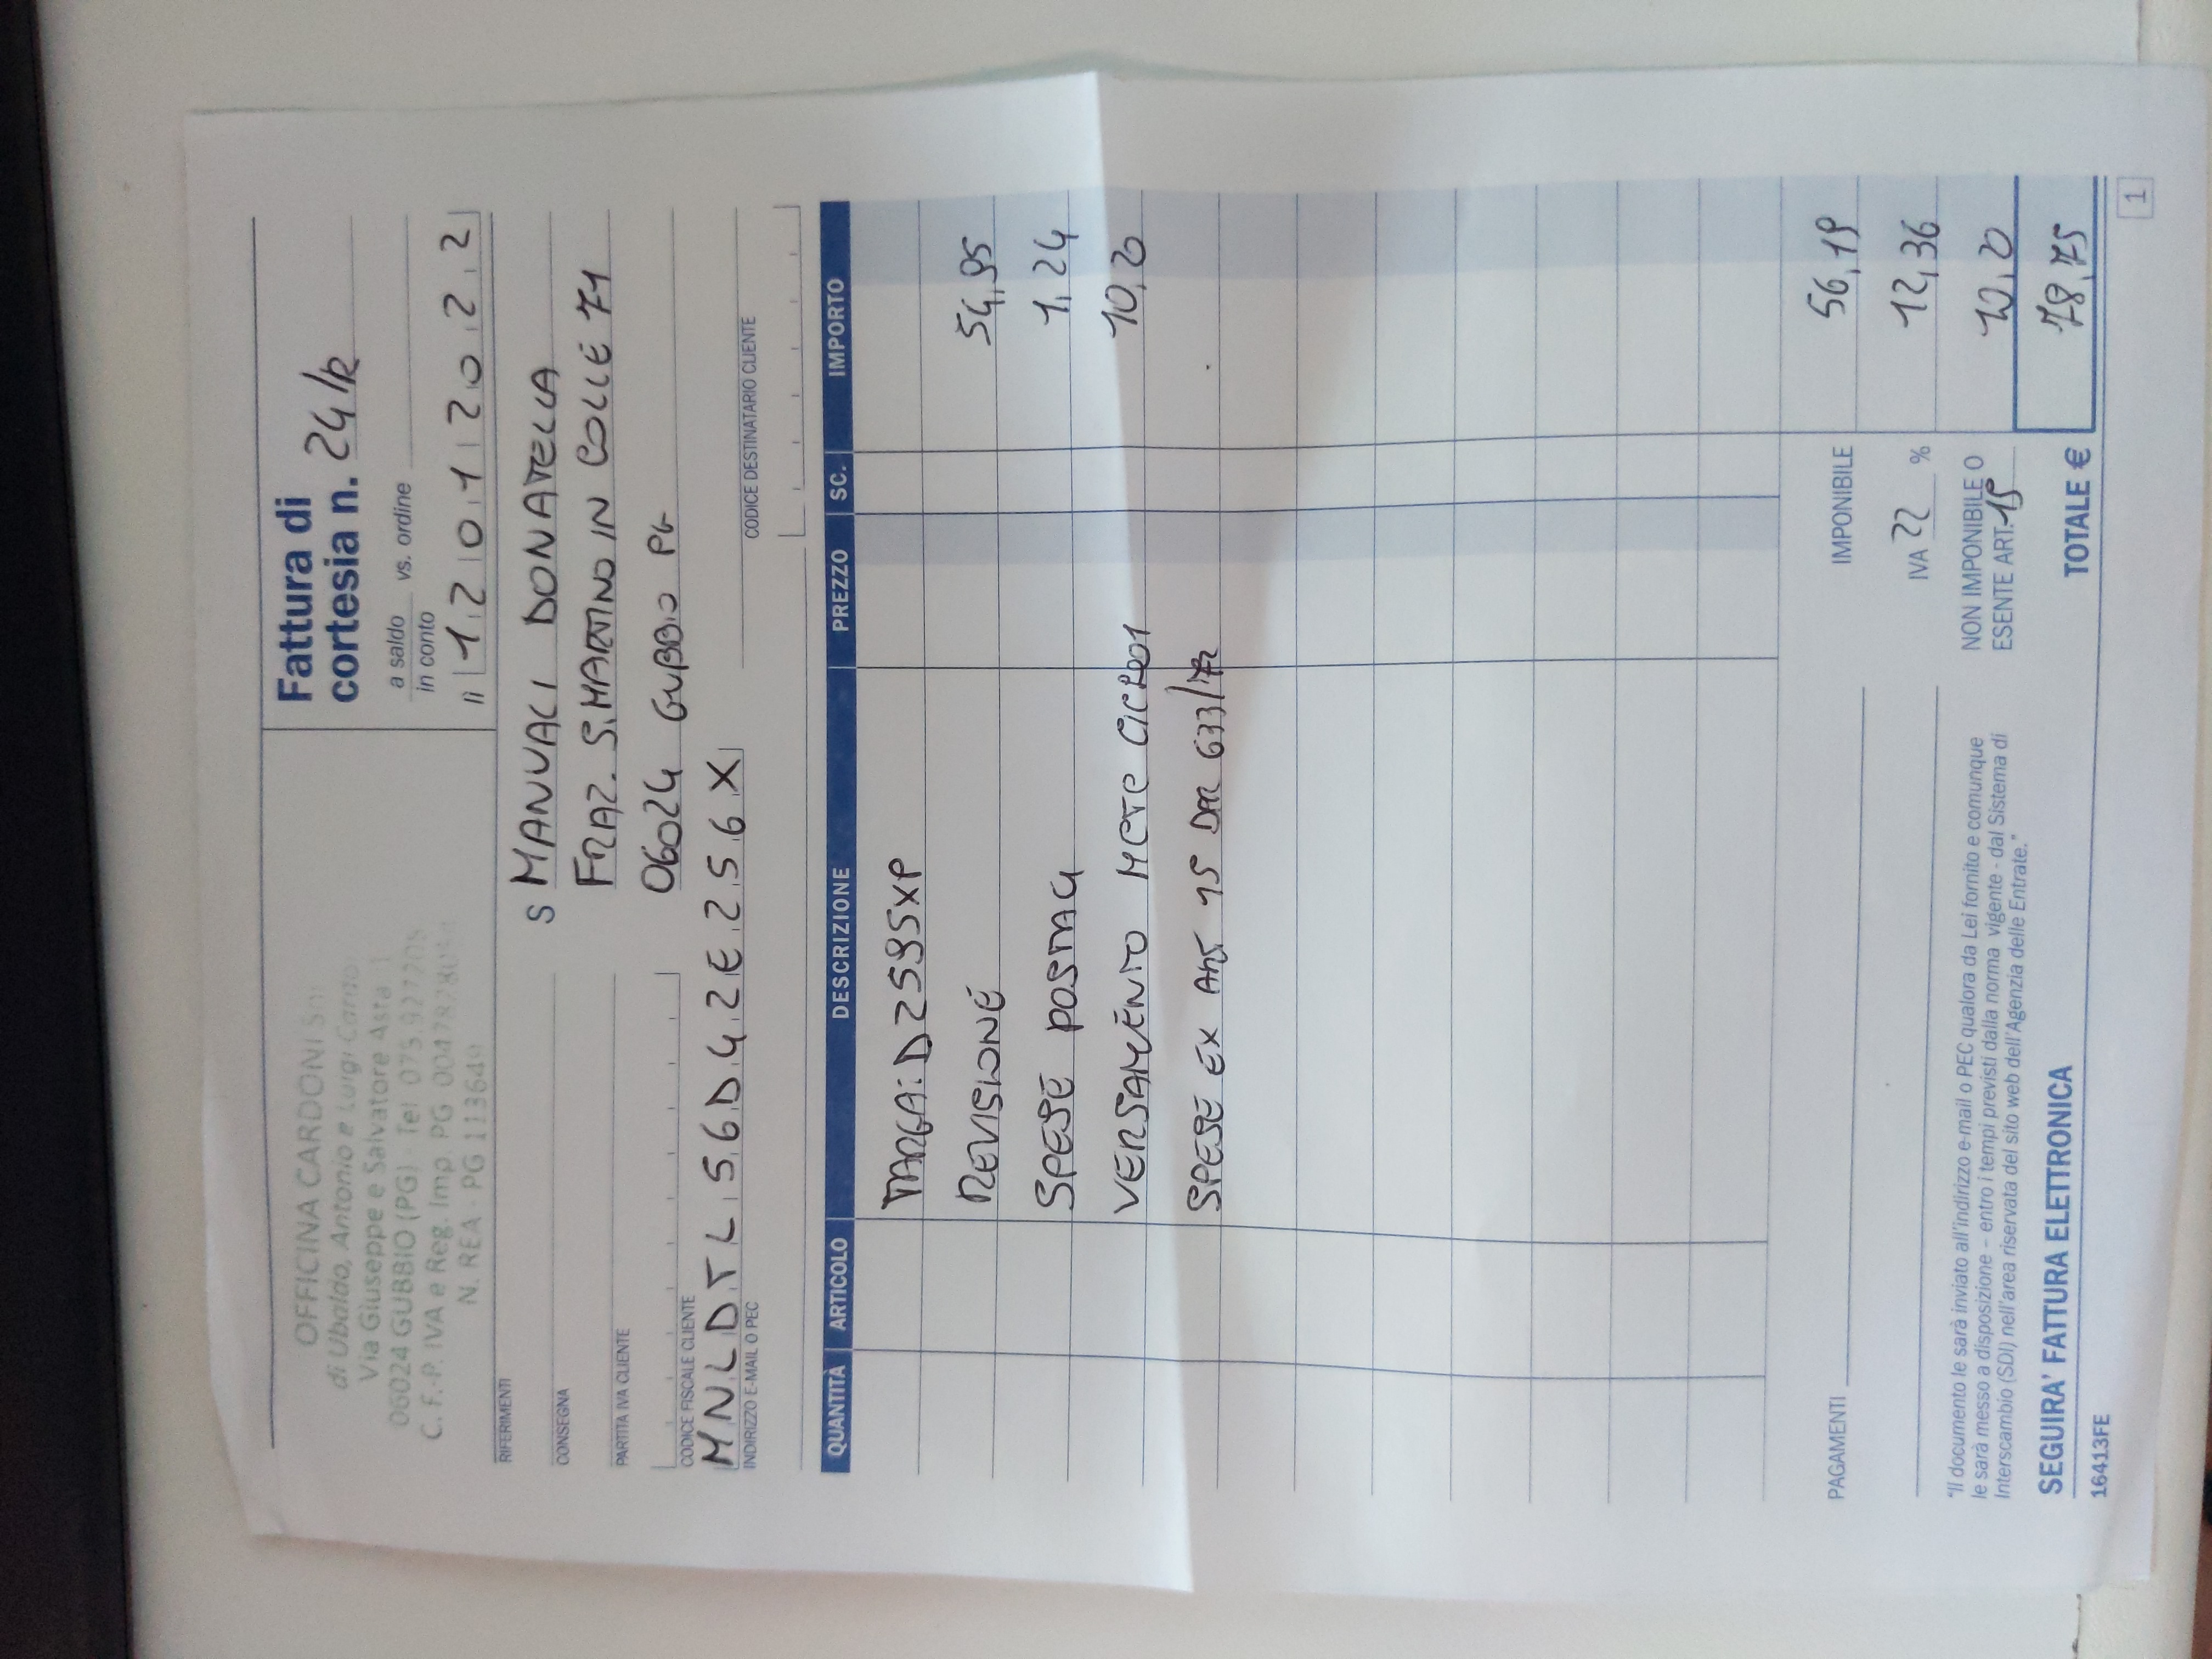 OFFICINA CARDONI Snc
di Ubaldo, Antonio e Luigi Cardo
Via Giuseppe e Salvatore Asta 1
06024 GUBBIO (PG) - Tel 075.927720
C. F.-P. IVA e Reg. Imp. PG
N. REA - PG 113649
Fattura di
cortesia n. 24/R
a saldo
in conto
vs. ordine
il 12 01 2022
RIFERIMENTI
CONSEGNA
PARTITA IVA CLIENTE
S MANUALI DONATELLA
FRAZ. S. MARTINO IN COLLE 71
06024 GUBBIO PG
CODICE FISCALE CLIENTE
MNLDTL56D42E256X
INDIRIZZO E-MAIL O PEC
CODICE DESTINATARIO CLIENTE
QUANTITÀ ARTICOLO DESCRIZIONE PREZZO SC. IMPORTO
TARGA: DZ595XP
REVISIONE 54,95
SPESE POSTALI 1,24
VERSAMENTO MCTC 10,20
SPESE EX ART 15 DPR 633/72
PAGAMENTI
IMPONIBILE 56,19
IVA 22 % 12,36
NON IMPONIBILE O
ESENTE ART. 15 10,20
TOTALE € 78,75
"Il documento le sarà inviato all'indirizzo e-mail o PEC qualora da Lei fornito e comunque
le sarà messo a disposizione – entro i tempi previsti dalla norma vigente - dal Sistema di
Interscambio (SDI) nell'area riservata del sito web dell'Agenzia delle Entrate."
SEGUIRA' FATTURA ELETTRONICA
16413FE
1